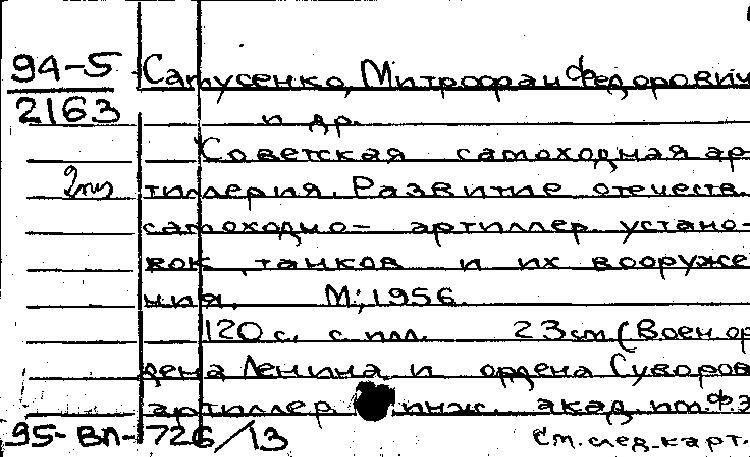 94-5 Самусенко, Митрофан Федорович
2163 и др.
Советская самоходная ар-
2 экз тиллерия. Развитие отечеств.
самоходно- артиллер. устано-
вок, танков и их вооруже
ния. М., 1956.
120 с. с илл. 23 см (Воен. ор
дена Ленина и ордена Суворов
артиллер. инж. акад. им. Ф.Э
95-ВЛ-726/13 См. след. карт.